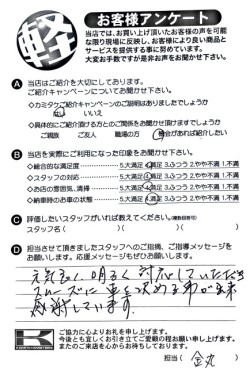 軽
お客様アンケート
当店では、お買い上げ頂いたお客様の声を可能
な限り現場に反映し、お客様により良い商品と
サービスを提供する事に努めています。
大変お手数ですが是非お声をお聞かせ下さい。
A 当店はご紹介を大切にしております。
ご紹介キャンペーンについてお聞かせ下さい。
◇カミタケご紹介キャンペーンのご説明はありましたでしょうか
はい いいえ
◇具体的にご紹介頂ける方とのご関係をお聞かせ頂けますでしょうか
ご親族 ご友人 職場の方 機会があれば紹介したい
B 当店を実際にご利用になった印象をお聞かせ下さい。
◇総合的な満足度 5.大満足 4.満足 3.ふつう 2.やや不満 1.不満
◇スタッフの対応 5.大満足 4.満足 3.ふつう 2.やや不満 1.不満
◇お店の雰囲気、清掃 5.大満足 4.満足 3.ふつう 2.やや不満 1.不満
◇納車時のお車の状態 5.大満足 4.満足 3.ふつう 2.やや不満 1.不満
C 評価したいスタッフがいれば教えてください。(複数回答可)
スタッフ名( )( )( )
D 担当させて頂きましたスタッフへのご指摘、ご指導メッセージを
お願いします。応援メッセージもぜひお願いします。
元気よく明るく対応していただき
スムーズに車を決める事が出来
感謝しています。
K
ご協力に心よりお礼を申し上げます。
今後とも宜しくお引き立てご愛顧の程お願い申し上げます。
またのご来店を心からお待ちしております。
担当( 金丸 )